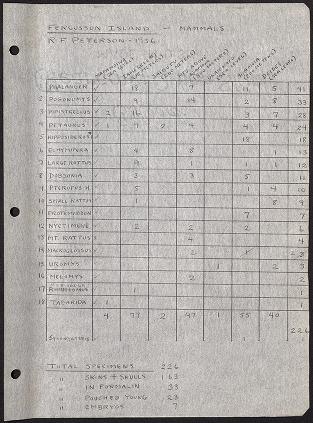 FERGUSSON ISLAND — MAMMALS
R F PETERSON - 1956
PHALANGER 18 7 11 5 41
2 POGONOMYS 9 14 2 8 33
3 PIPISTRELLUS 2 16 3 7 28
4 PETAURUS 1 9 2 4 4 4 24
5 HIPPOSIDEROS 18 18
6 ECHYMIPERA 4 8 1 13
7 LARGE RATTUS 9 1 1 1 12
8 DOBSONIA 3 3 5 11
9 PTEROPUS H. 5 1 4 10
10 SMALL RATTUS 1 8 9
11 7 7
12 NYCTIMENE 2 2 2 6
13 MT. RATTUS 4 4
14 MACROGLOSSUS 2 1
15 UROMYS 1 2 3
16 MELOMYS 2 2
17 1 1
18 TADARIDA 1 1
4 77 2 47 1 55 40
226
TOTAL SPECIMENS 226
" SKINS + SKULLS 163
" IN FORMALIN 33
" POUCHED YOUNG 23
" EMBRYOS 7